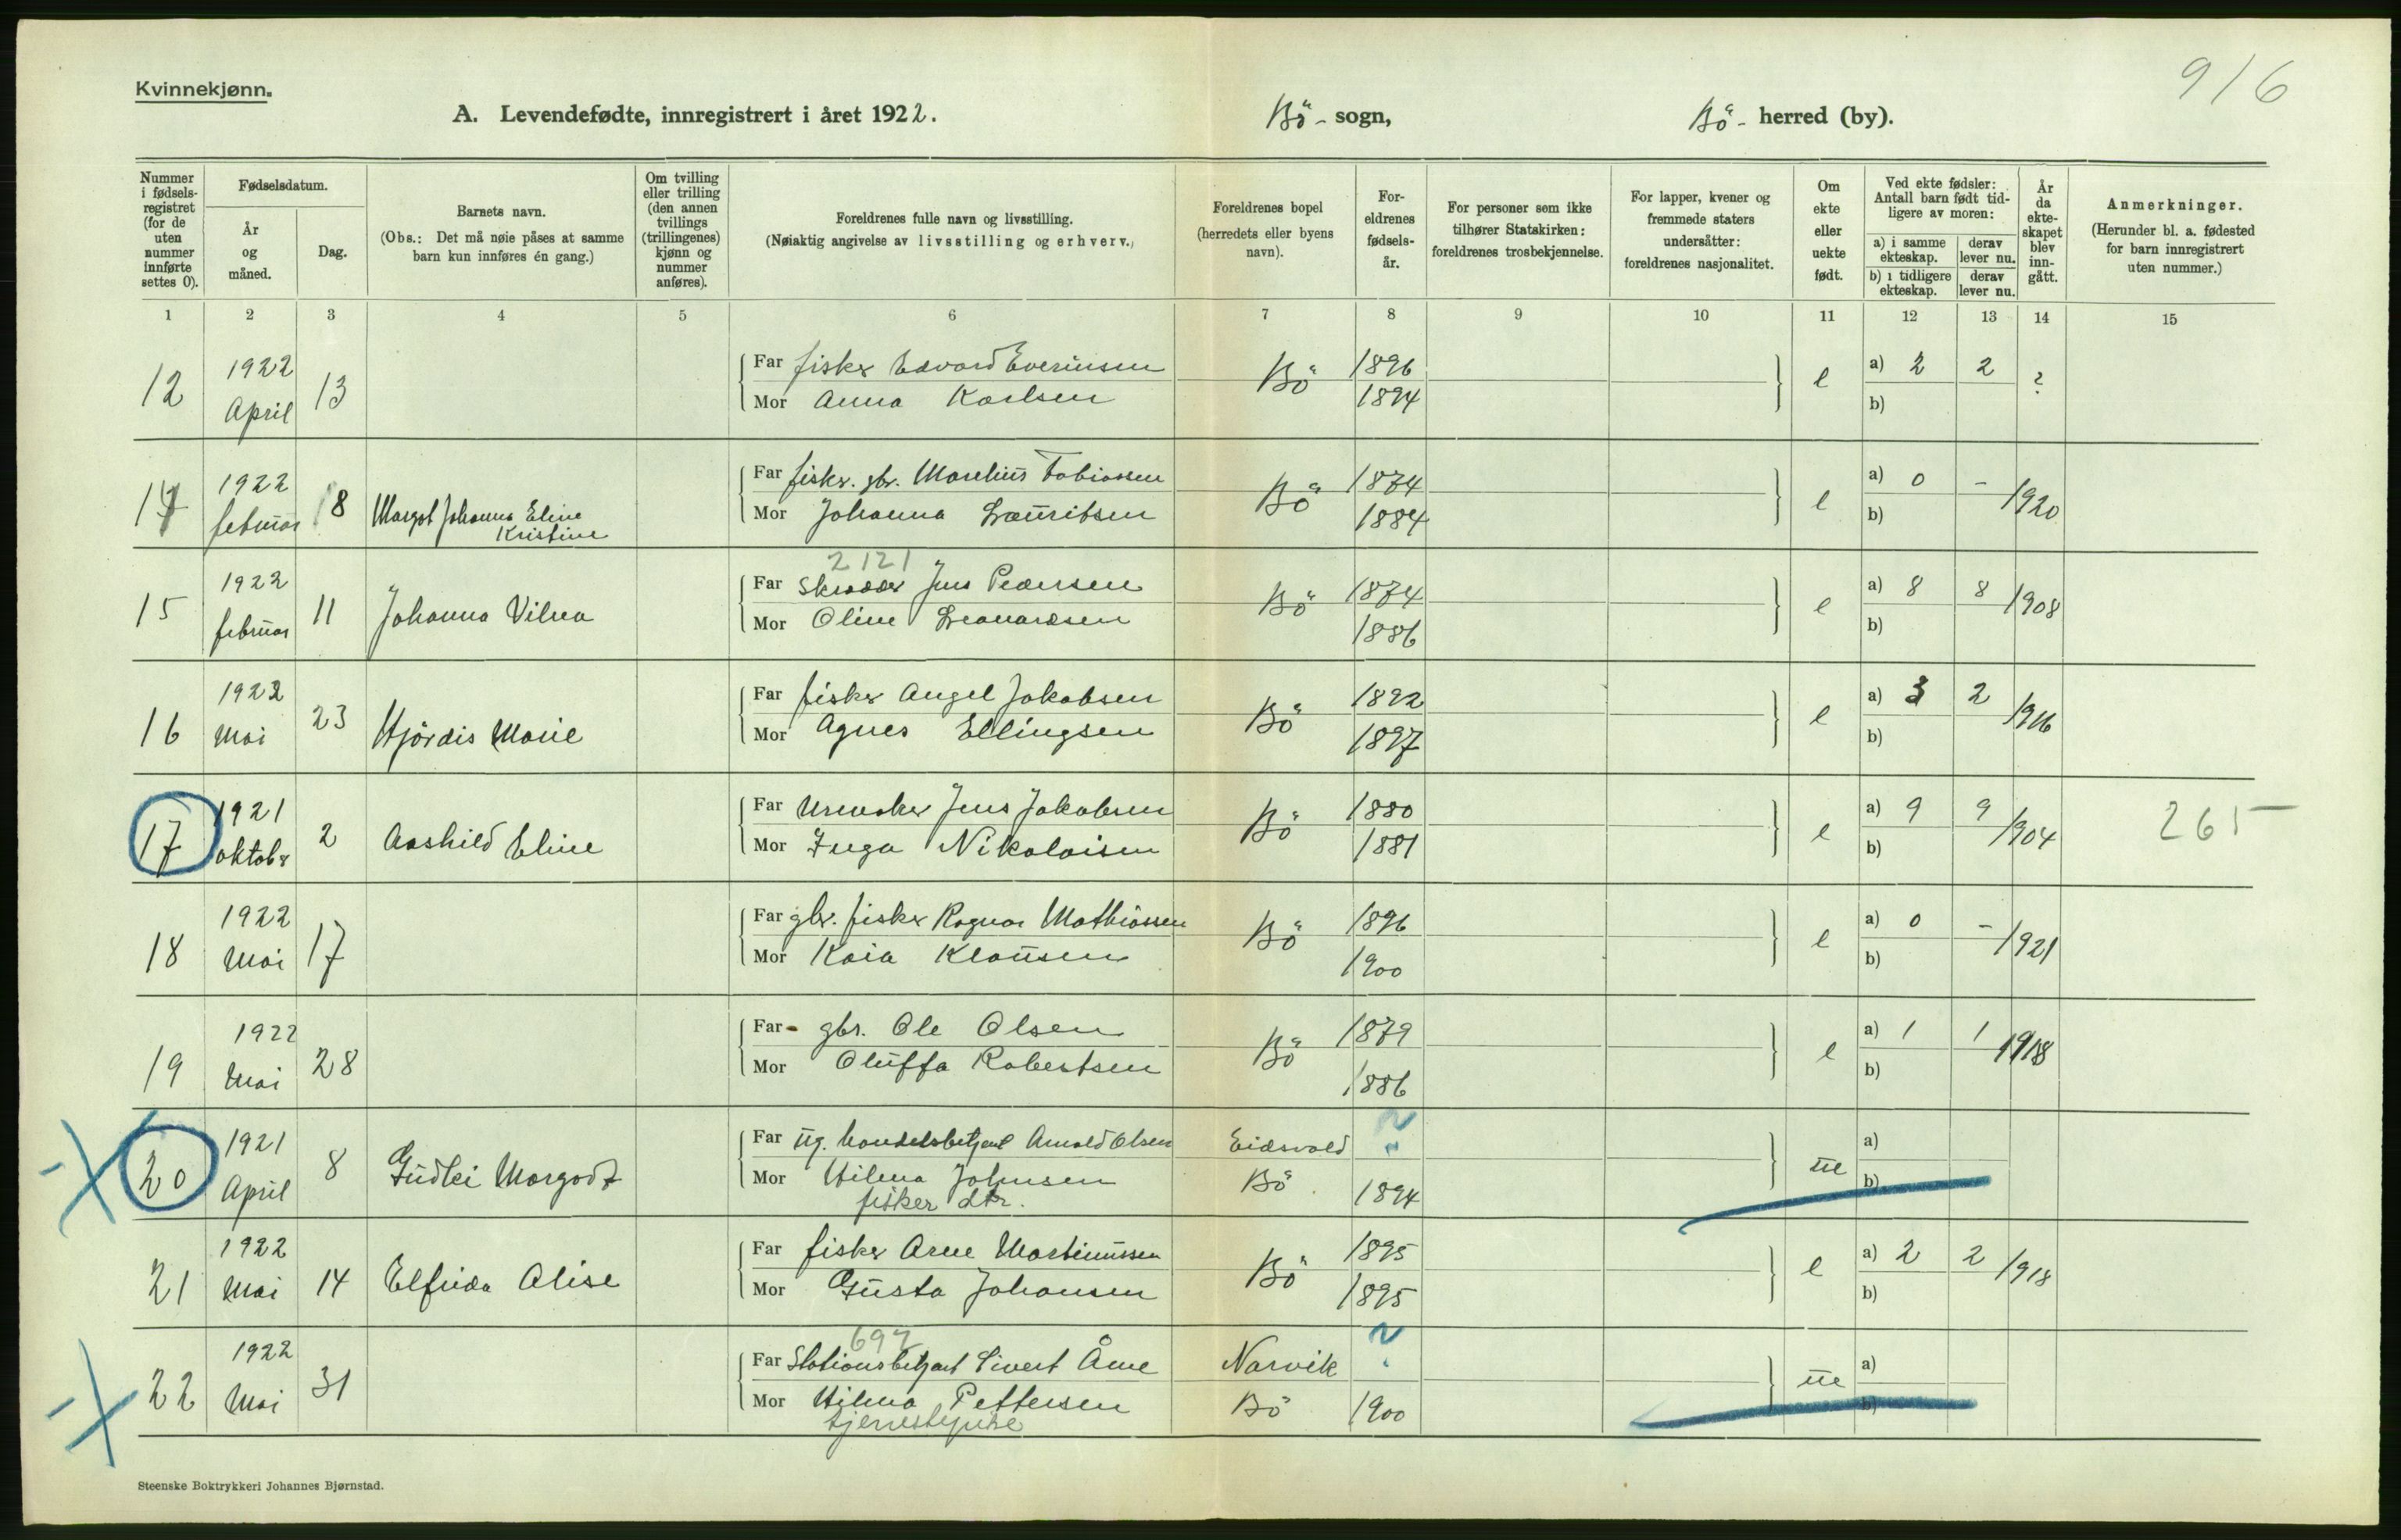 916
Kvinnekjønn.
A. Levendefødte, innregistrert i året 1922. Bö - sogn, Bö - herred (by).
Nummer i fødsels-registret (for de uten nummer innførte settes 0).
Fødselsdatum.
År og måned.
Dag.
Barnets navn.
(Obs.: Det må nøie påses at samme barn kun innføres én gang.)
Om tvilling eller trilling (den annen tvillings (trillingenes) kjønn og nummer anføres).
Foreldrenes fulle navn og livsstilling.
(Nøiaktig angivelse av livsstilling og erhverv.)
Foreldrenes bopel (herredets eller byens navn).
For-eldrenes fødsels-år.
For personer som ikke tilhører Statskirken: foreldrenes trosbekjennelse.
For lapper, kvener og fremmede staters undersåtter: foreldrenes nasjonalitet.
Om ekte eller uekte født.
Ved ekte fødsler: Antall barn født tid-ligere av moren:
a) i samme ekteskap. derav lever nu.
b) i tidligere ekteskap. derav lever nu.
År da ekte-skapet blev inn-gått.
Anmerkninger.
(Herunder bl. a. fødested for barn innregistrert uten nummer.)
1 2 3 4 5 6 7 8 9 10 11 12 13 14 15
12 1922 April 13 Far fisker Edvard Everinsen Bö 1896 e a) 2 2 ?
Mor Anna Karlsen 1894 b)
14 1922 februar 18 Margot Johanna Eline Kristine Far fisker. gbr. Marelius Tobiassen Bö 1874 e a) 0 - 1920
Mor Johanna Lauritsen 1884 b)
2121
15 1922 februar 11 Johanna Vilma Far Skrædder Jens Pedersen Bö 1874 e a) 8 8 1908
Mor Oline Leonardsen 1886 b)
16 1922 Mai 23 Hjördis Marie Far fisker Angel Jakobsen Bö 1892 e a) 3 2 1916
Mor Agnes Ellingsen 1897 b)
17 1921 oktobr 2 Aashild Eline Far Urmaker Jens Jakobsen Bö 1880 e a) 9 9 1904 265
Mor Inga Nikolaisen 1881 b)
18 1922 Mai 17 Far gbr. fisker Ragnar Mathiassen Bö 1896 e a) 0 - 1921
Mor Kaia Klausen 1900 b)
19 1922 Mai 28 Far gbr. Ole Olsen Bö 1879 e a) 1 1 1918
Mor Oluffa Robertsen 1886 b)
20 1921 April 8 Gudlei Margodt Far ug. handelsbetjent Arnold Olsen Eidsvold ? ue a)
Mor Hilma Johnsen Bö 1894 b)
fisker dtr.
21 1922 Mai 14 Elfrida Alise Far fisker Arne Martinussen Bö 1895 e a) 2 2 1918
Mor Gusta Johansen 1895 b)
697
22 1922 Mai 31 Far Stationsbetjent Sivert Åme Narvik ? ue a)
Mor Hilma Pettersen Bö 1900 b)
tjenestepike
Steenske Boktrykkeri Johannes Bjørnstad.